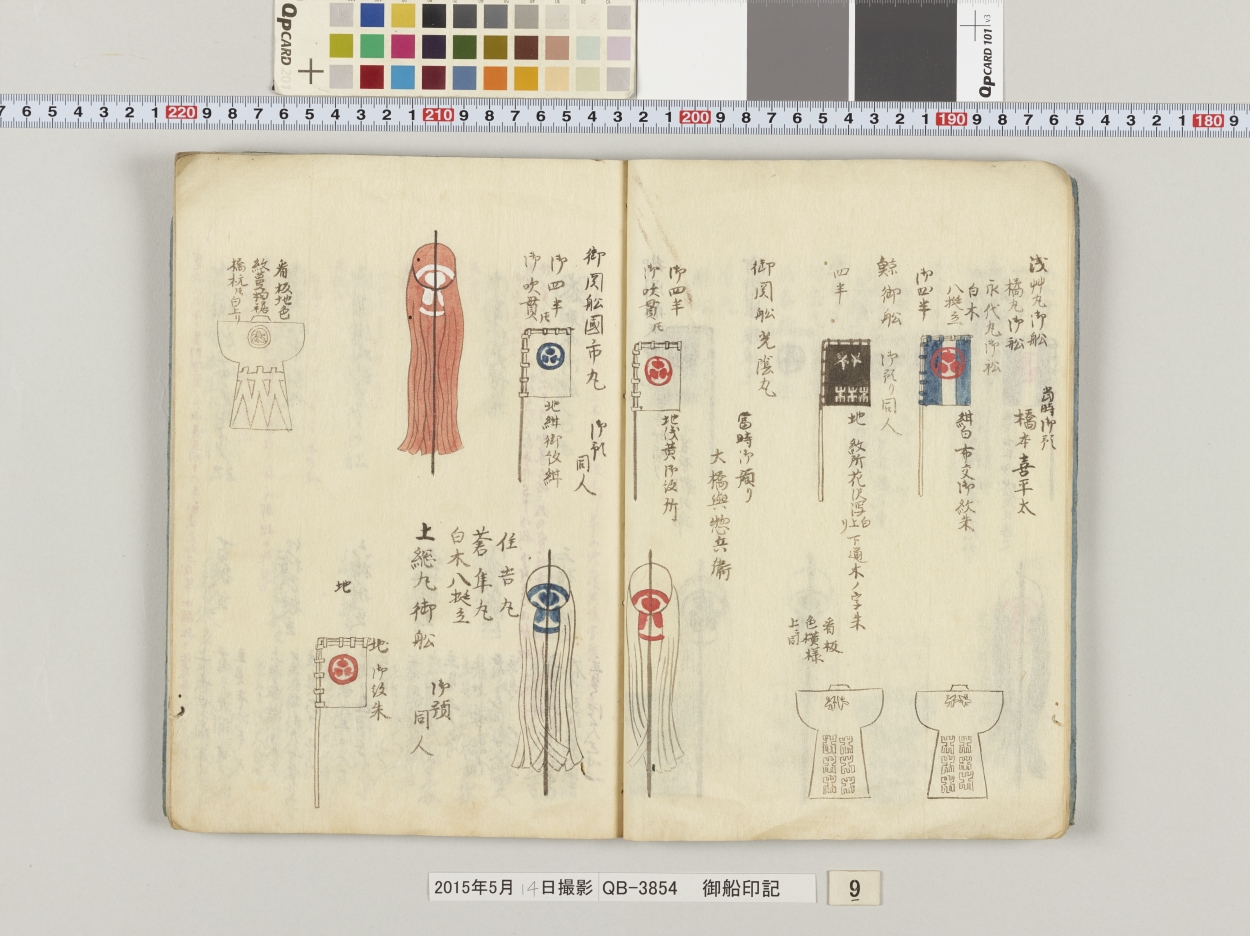 QPCARD 201
QPCARD 101 v3
7 6 5 4 3 2 1 220 9 8 7 6 5 4 3 2 1 210 9 8 7 6 5 4 3 2 1 200 9 8 7 6 5 4 3 2 1 190 9 8 7 6 5 4 3 2 1 180 9
浅艸丸御船
橋丸御船
永代丸御船
白木
八挺立
当時御預
橋本喜平太
御四半
紺白布交御紋朱
鯨御船
御預り同人
四半
地
紋所花沢瀉白上り
下通木ノ字朱
看板
色模様
上ニ同
御関船光陰丸
當時御預り
大橋與惣兵衛
御四半
御吹貫
地浅黄御紋所
御関船國市丸
御預
同人
御四半
御吹貫
地紺御紋紺
住吉丸
蒼隼丸
白木八挺立
土総丸御船
御預
同人
地御紋朱
地
看板地色
橋杭白上り
2015年5月14日撮影 QB-3854 御船印記
9